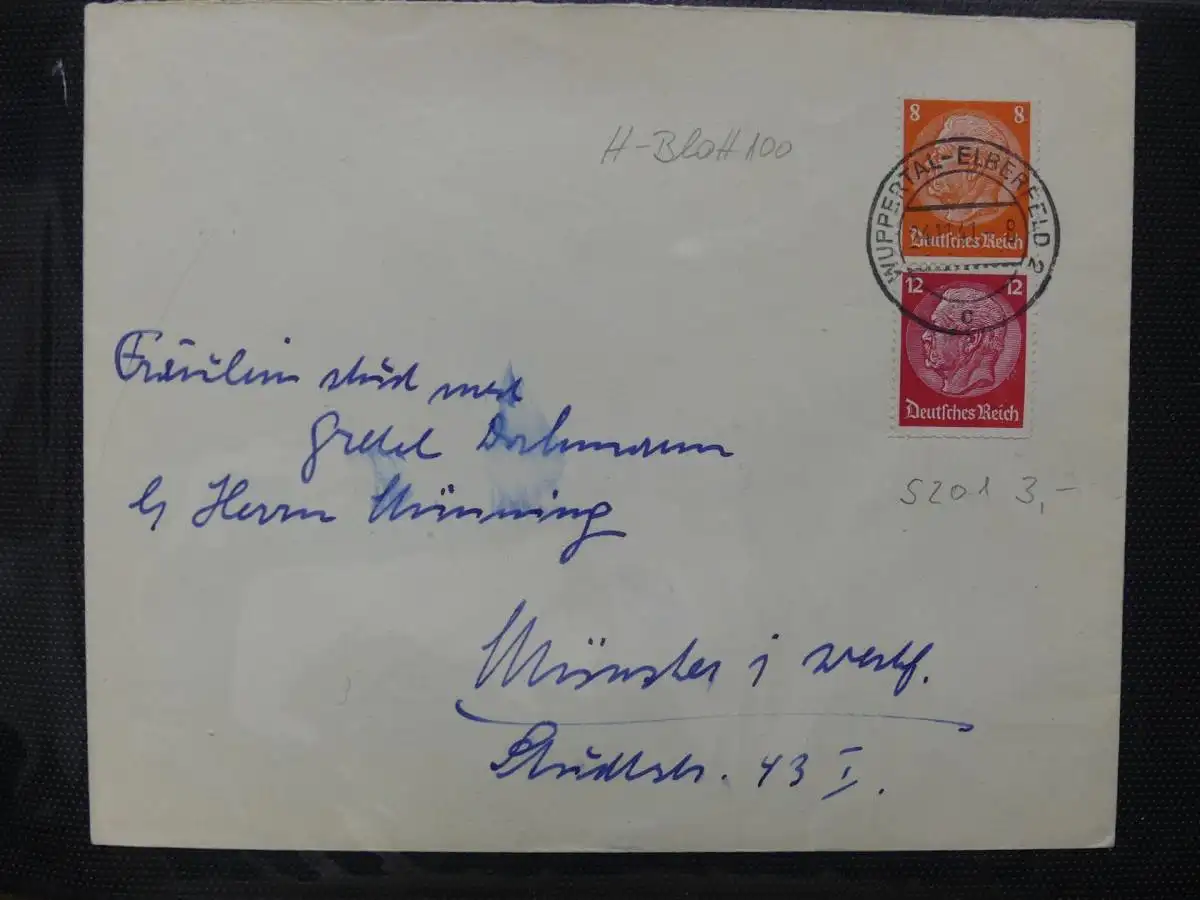 H-Blatt 100
8 8
Deutsches Reich
WUPPERTAL-ELBERFELD 2
24.11.41-8
c
12 12
Deutsches Reich
S201 3,-
Fräulein stud med
Gretel Dahmann
b/ Herrn Münning
Münster i Westf.
Studtstr. 43 I.